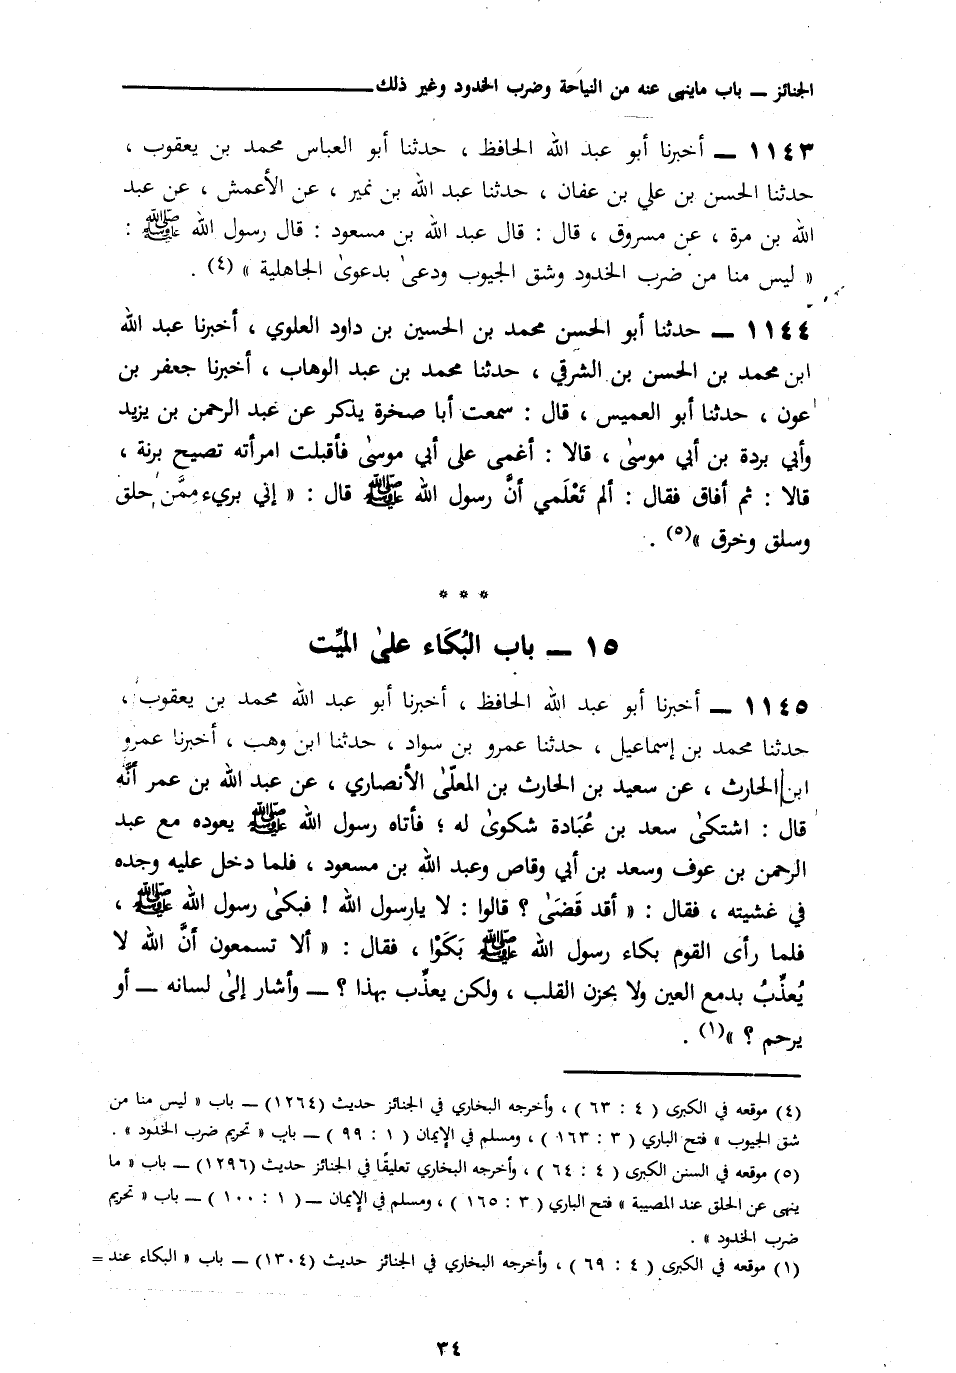 الجنائز ــ باب ماينهى عنه من النياحة وضرب الخدود وغير ذلك
١١٤٣ ــ أخبرنا أبو عبد الله الحافظ ، حدثنا أبو العباس محمد بن يعقوب ،
حدثنا الحسن بن علي بن عفان ، حدثنا عبد الله بن نمير ، عن الأعمش ، عن عبد
الله بن مرة ، عن مسروق ، قال : قال عبد الله بن مسعود : قال رسول الله ﷺ :
« ليس منا من ضرب الخدود وشق الجيوب ودعىٰ بدعوىٰ الجاهلية » (٤) .
١١٤٤ ــ حدثنا أبو الحسن محمد بن الحسين بن داود العلوي ، أخبرنا عبد الله
ابن محمد بن الحسن بن الشرقي ، حدثنا محمد بن عبد الوهاب ، أخبرنا جعفر بن
عون ، حدثنا أبو العميس ، قال : سمعت أبا صخرة يذكر عن عبد الرحمن بن يزيد
وأبي بردة بن أبي موسىٰ ، قالا : أغمى على أبي موسىٰ فأقبلت امرأته تصيح برنة ،
قالا : ثم أفاق فقال : ألم تَعْلَمي أنَّ رسول الله ﷺ قال : « إني بريء ممَّن حلق
وسلق وخرق »(٥) .
* * *
١٥ ــ باب البُكَاء علىٰ الميِّت
١١٤٥ ــ أخبرنا أبو عبد الله الحافظ ، أخبرنا أبو عبد الله محمد بن يعقوب ،
حدثنا محمد بن إسماعيل ، حدثنا عمرو بن سواد ، حدثنا ابن وهب ، أخبرنا عمرو
ابن الحارث ، عن سعيد بن الحارث بن المعلّىٰ الأنصاري ، عن عبد الله بن عمر أنَّه
قال : اشتكىٰ سعد بن عُبَادة شكوىٰ له ؛ فأتاه رسول الله ﷺ يعوده مع عبد
الرحمن بن عوف وسعد بن أبي وقاص وعبد الله بن مسعود ، فلما دخل عليه وجده
في غشيته ، فقال : « أقد قَضَىٰ ؟ قالوا : لا يارسول الله ! فبكىٰ رسول الله ﷺ ،
فلما رأى القوم بكاء رسول الله ﷺ بَكَوْا ، فقال : « ألا تسمعون أنَّ الله لا
يُعذِّبُ بدمع العين ولا بحزن القلب ، ولكن يعذِّب بهذا ؟ ــ وأشار إلىٰ لسانه ــ أو
يرحم ؟ »(١) .
(٤) موقعه في الكبرى ( ٤ : ٦٣ ) ، وأخرجه البخاري في الجنائز حديث (١٢٦٤) ــ باب « ليس منا من
شق الجيوب » فتح الباري ( ٣ : ١٦٣ ) ، ومسلم في الإيمان ( ١ : ٩٩ ) ــ باب « تحريم ضرب الخدود » .
(٥) موقعه في السنن الكبرى ( ٤ : ٦٤ ) ، وأخرجه البخاري تعليقًا في الجنائز حديث (١٢٩٦) ــ باب « ما
ينهى عن الحلق عند المصيبة » فتح الباري ( ٣ : ١٦٥ ) ، ومسلم في الإيمان ــ ( ١ : ١٠٠ ) ــ باب « تحريم
ضرب الخدود » .
(١) موقعه في الكبرى ( ٤ : ٦٩ ) ، وأخرجه البخاري في الجنائز حديث (١٣٠٤) ــ باب « البكاء عند =
٣٤